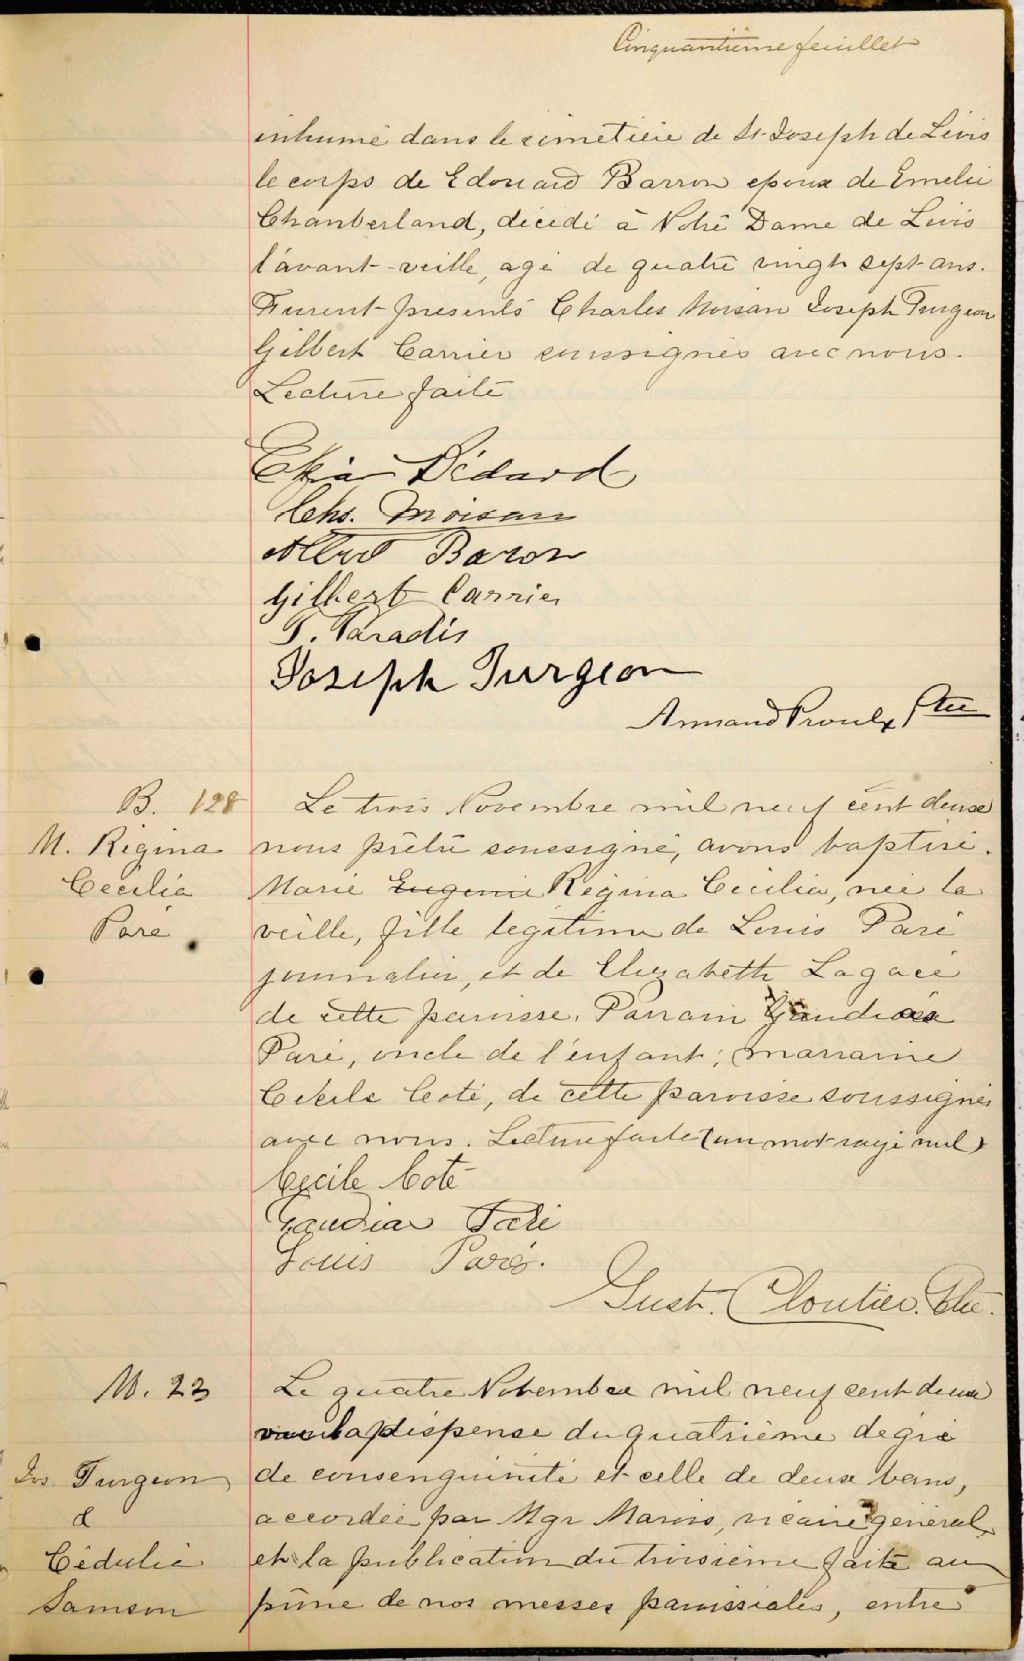 Cinquantième feuillet
inhumé dans le cimetière de St Joseph de Lévis
le corps de Edouard Barron epoux de Emelie
Chamberland, décédé à Notre Dame de Lévis
l'avant-veille, agé de quatre vingt sept ans.
Furent présents Charles Moisan Joseph Turgeon
Gilbert Carrier soussignés avec nous.
Lecture faite
Bédard
Chs. Moisan
Albert Baron
Gilbert Carrier
T. Paradis
Joseph Turgeon
Armand Proulx Ptre
B. 128
M. Régina
Cecilia
Paré
Le trois Novembre mil neuf cent deux
nous prêtre soussigné, avons baptisé
Marie Eugenie Régina Cecilia, née la
veille, fille légitime de Louis Paré
journalier, et de Elizabeth Lagacé
de cette paroisse. Parrain Gaudias
Paré, oncle de l'enfant; marraine
Cécile Coté, de cette paroisse soussignés
avec nous. Lecture faite (un mot rayé nul)
Cécile Coté
Gaudias Paré
Louis Paré.
Gust. Cloutier. Ptre.
M. 23
Jos Turgeon
&
Cédulie
Samson
Le quatre Novembre mil neuf cent deux
vu la dispense du quatrième dégré
de consenguinité et celle de deux bans,
accordée par Mgr Marois, vicaire général,
et la publication du troisième faite au
prône de nos messes paroissiales, entre